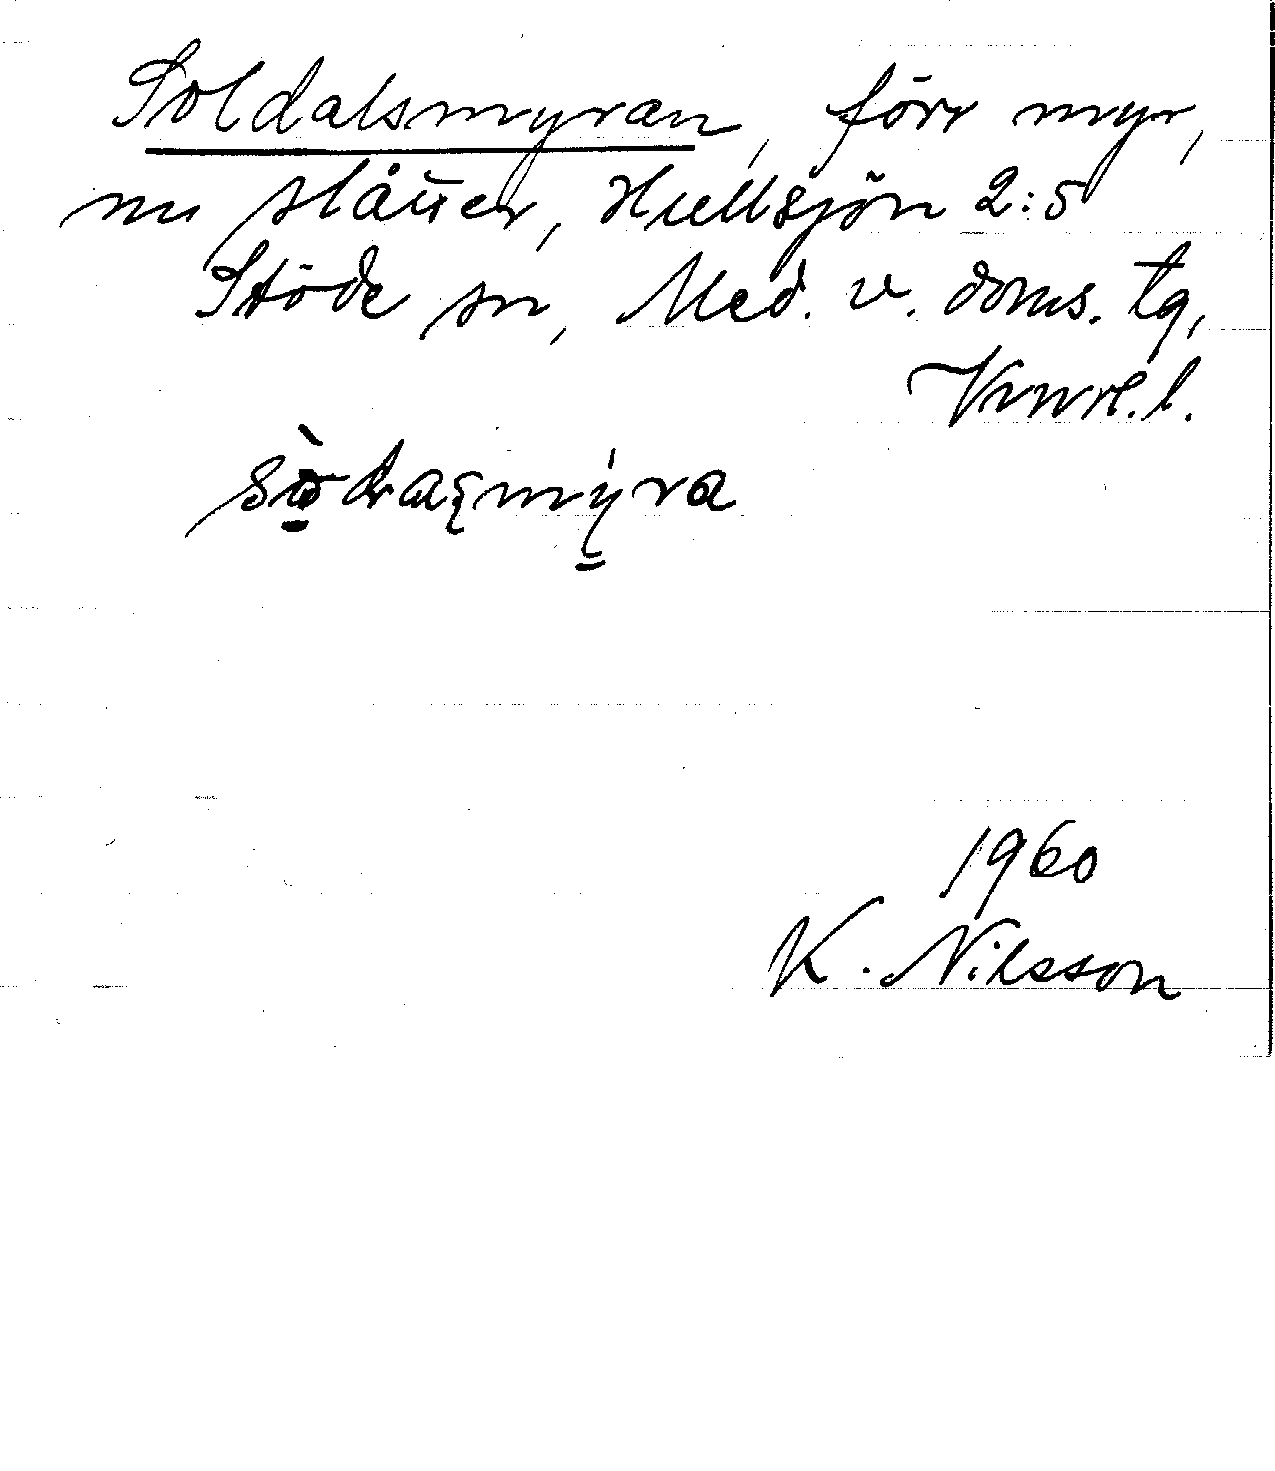 Soldatsmyran, förr myr,
nu slåtter, Hullsjön 2:5
Stöde sn, Med. v. doms. tg,
Vnrl. l.
1960
K. Nilsson